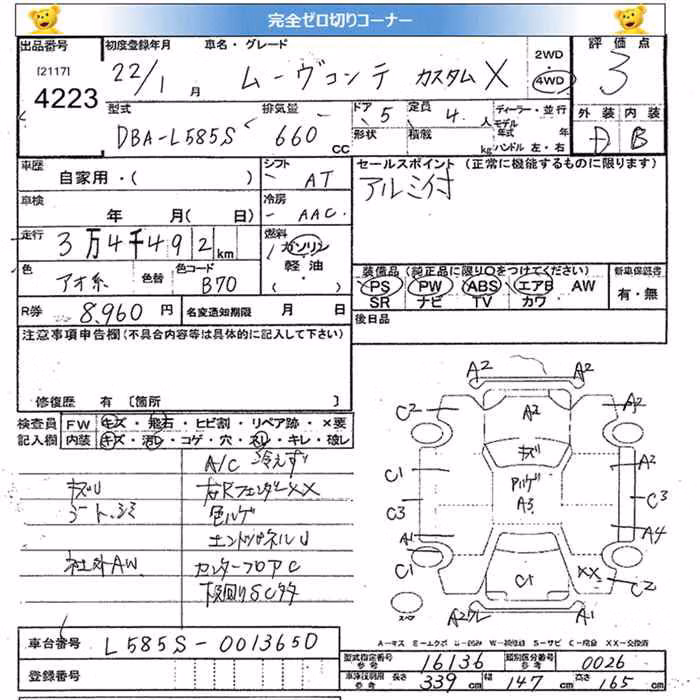 完全ゼロ切りコーナー
出品番号 初度登録年月 車名・グレード 2WD 評価点
[2117] 22/1 月 ムーヴコンテ カスタムX ・ 3
4223 4WD
型式 排気量 ドア 5 定員 4 人 ディーラー・並行 外装 内装
DBA-L585S 660 CC 形状 積載 kg モデル年式 年 D B
ハンドル 左・右
車歴 シフト セールスポイント (正常に機能するものに限ります)
自家用・( ) AT アルミ付
車検 年 月( 日) 冷房 AAC
走行 3万4千492km 燃料 ガソリン
軽油
・( )
色 アオ系 色替 色コード B70 装備品(純正品に限り○をつけてください) 新車保証書
PS PW ABS エアB AW 有・無
SR ナビ TV カワ
R券 8,960円 名変通知期限 月 日 後日品
注意事項申告欄(不具合内容等は具体的に記入して下さい)
修復歴 有〔箇所 〕
検査員 FW キズ・飛石・ヒビ割・リペア跡・×要
記入欄 内装 キズ・汚レ・コゲ・穴・スレ・キレ・破レ
A/C 冷えず
キズU 右RフェンダーXX
シート、シミ 色ハゲ
エンドパネルU
社外AW センターフロアC
下廻りSC多
A2 A2
C2 A2 A2
キズ
C1 アハゲ A2
C3 A3 C3
A1 A4
C1 C1 XX C2
スペア A2ワレ A1
A-キズ E-エクボ U-凹み W-補修跡 S-サビ C-腐食 XX-交換済
車台番号 L585S-0013650
登録番号
型式指定番号 参考 16136 類別区分番号 参考 0026
車庫証明用 参考 長さ 339 cm 幅 147 cm 高さ 165 cm